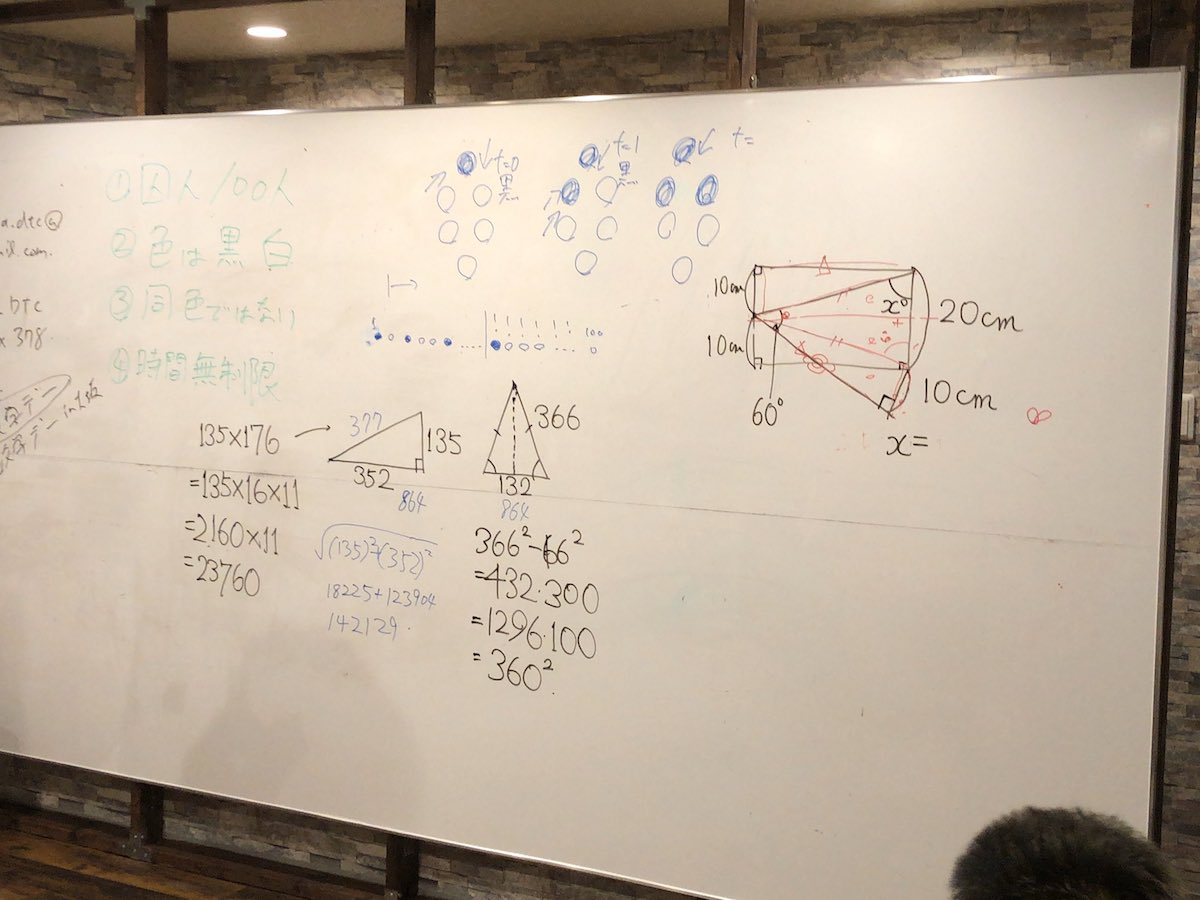 a.dtc@
il.com.
DTC
x 378
① 囚人100人
② 色は黒白
③ 同色ではない
④ 時間無制限
t=0
黒
t=1
黒
t=
100
0
135×176
=135×16×11
=2160×11
=23760
377
135
352
864
√(135)²+(352)²
18225+123904
142129.
366
132
864
366²-66²
=432・300
=1296・100
=360².
10cm
10cm
x°
20cm
10cm
60°
x=